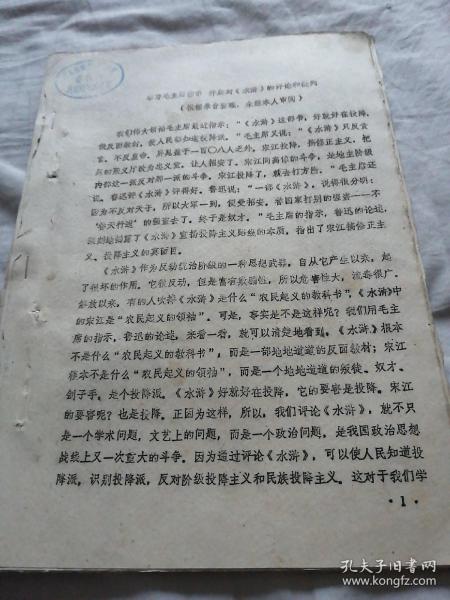 学习毛主席指示 开展对《水浒》的评论和批判
(根据录音整理，未经本人审阅)
我们伟大领袖毛主席最近指示：“《水浒》这部书，好就好在投降。
做反面教材，使人民都知道投降派。”毛主席又说：“《水浒》只反贪
官，不反皇帝。屏晁盖于一百〇八人之外。宋江投降，搞修正主义，把
晁的聚义厅改为忠义堂，让人招安了。宋江同高俅的斗争，是地主阶级
内部这一派反对那一派的斗争。宋江投降了，就去打方腊。”毛主席还
说，鲁迅评《水浒》评得好。鲁迅说：“一部《水浒》，说得很分明：
因为不反对天子，所以大军一到，便受招安，替国家打别的强盗——不
‘替天行道’的强盗去了。终于是奴才。”毛主席的指示，鲁迅的论述，
深刻地揭露了《水浒》宣扬投降主义路线的本质，指出了宋江搞修正主
义、投降主义的真面目。
《水浒》作为反动统治阶级的一种思想武器，自从它产生以来，起
了很坏的作用。它很反动，但是富有欺骗性，所以危害性大，流毒很广。
解放以来，有的人吹捧《水浒》是什么“农民起义的教科书”，《水浒》中
的宋江是“农民起义的领袖”。可是，事实是不是这样呢？我们用毛主
席的指示，鲁迅的论述，来看一看，就可以清楚地看到。《水浒》根本
不是什么“农民起义的教科书”，而是一部地地道道的反面教材；宋江
根本不是什么“农民起义的领袖”，而是一个地地道道的叛徒、奴才、
刽子手，是个投降派。《水浒》好就好在投降，它的要害是投降。宋江
的要害呢？也是投降。正因为这样，所以，我们评论《水浒》，就不只
是一个学术问题，文艺上的问题，而是一个政治问题，是我国政治思想
战线上又一次重大的斗争。因为通过评论《水浒》，可以使人民知道投
降派，识别投降派，反对阶级投降主义和民族投降主义。这对于我们学
·1·
孔夫子旧书网
www.kongfz.com